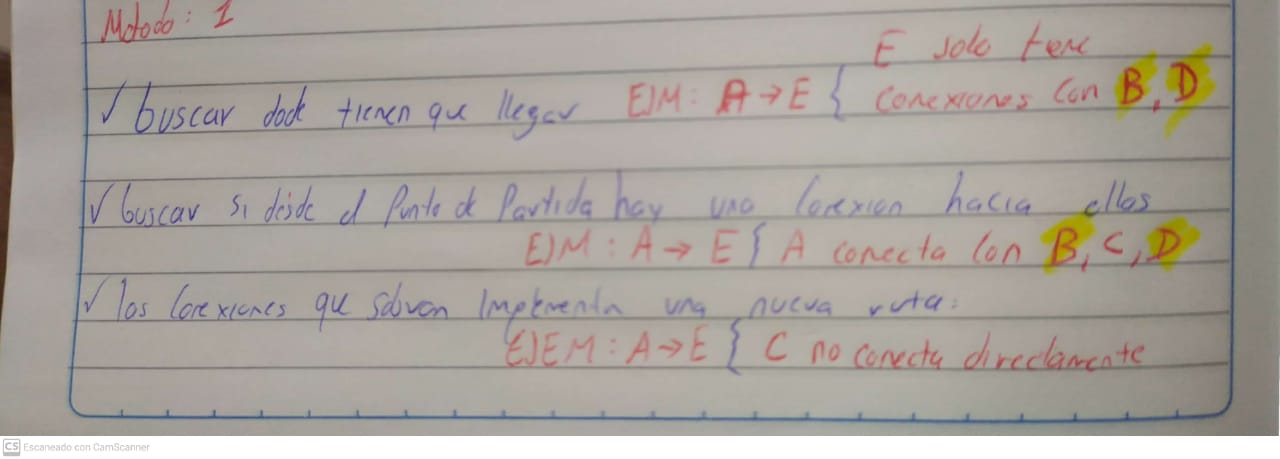 Metodo: 1
E solo tene
✓ buscar dode tienen que llegar EJM: A → E { conexiones con B, D
✓ buscar si desde el Punto de Partida hay una conexion hacia ellos
EJM: A → E { A conecta con B, C, D
✓ las conexiones que sobran implementa una nueva ruta:
EJEM: A → E { C no conecta directamente
CS Escaneado con CamScanner